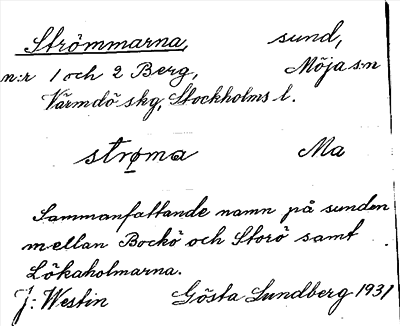 Strömmarna, sund,
n:r 1 och 2 Berg, Möja s:n
Värmdö skg, Stockholms l.
strøma Ma
Sammanfattande namn på sunden
mellan Bockö och Storö samt
Lökaholmarna.
J: Westin Gösta Lundberg 1931